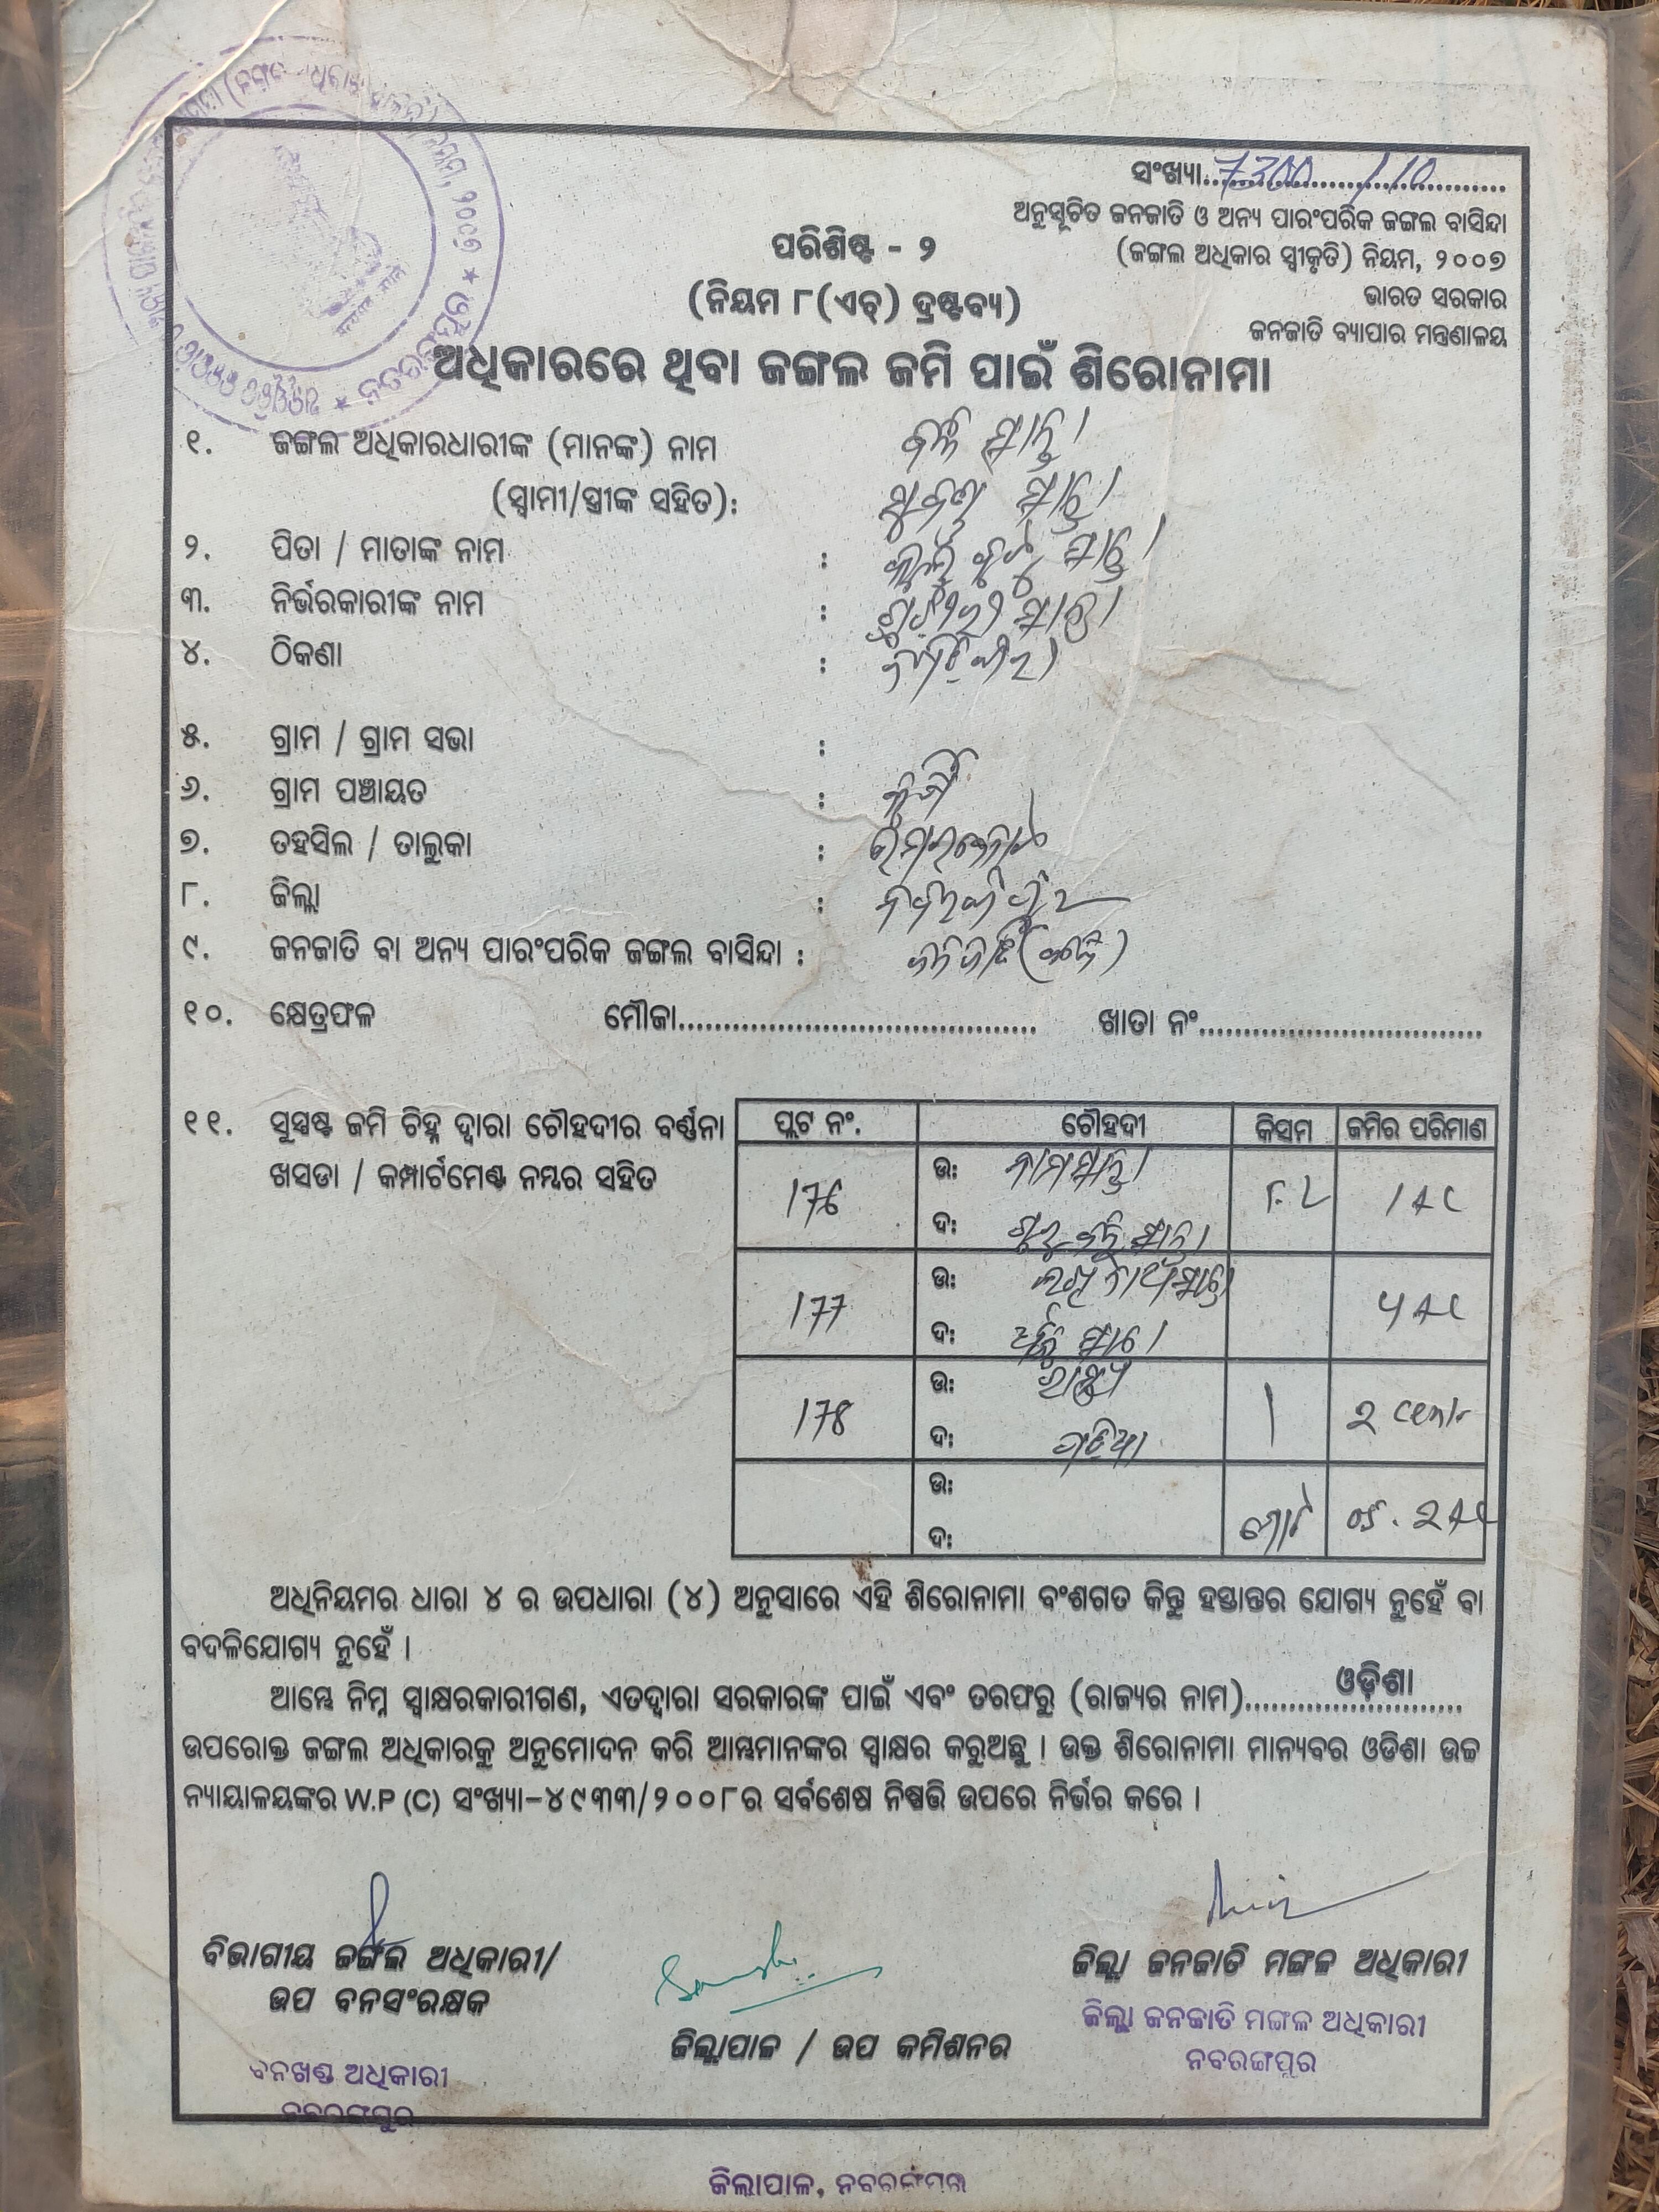 ସଂଖ୍ୟା..7300../10..
ଅନୁସୂଚିତ ଜନଜାତି ଓ ଅନ୍ୟ ପାରଂପରିକ ଜଙ୍ଗଲ ବାସିନ୍ଦା
(ଜଙ୍ଗଲ ଅଧିକାର ସ୍ୱୀକୃତି) ନିୟମ, ୨୦୦୭
ଭାରତ ସରକାର
ଜନଜାତି ବ୍ୟାପାର ମନ୍ତ୍ରଣାଳୟ
ପରିଶିଷ୍ଟ - ୨
(ନିୟମ ୮(ଏଚ୍) ଦ୍ରଷ୍ଟବ୍ୟ)
ଅଧିକାରରେ ଥିବା ଜଙ୍ଗଲ ଜମି ପାଇଁ ଶିରୋନାମା
୧. ଜଙ୍ଗଲ ଅଧିକାରଧାରୀଙ୍କ (ମାନଙ୍କ) ନାମ
(ସ୍ୱାମୀ/ସ୍ତ୍ରୀଙ୍କ ସହିତ):
୨. ପିତା / ମାତାଙ୍କ ନାମ :
୩. ନିର୍ଭରକାରୀଙ୍କ ନାମ :
୪. ଠିକଣା :
୫. ଗ୍ରାମ / ଗ୍ରାମ ସଭା :
୬. ଗ୍ରାମ ପଞ୍ଚାୟତ :
୭. ତହସିଲ / ତାଲୁକା : ଉମରକୋଟ
୮. ଜିଲ୍ଲା : ନବରଙ୍ଗପୁର
୯. ଜନଜାତି ବା ଅନ୍ୟ ପାରଂପରିକ ଜଙ୍ଗଲ ବାସିନ୍ଦା : ଜନଜାତି
୧୦. କ୍ଷେତ୍ରଫଳ ମୌଜା........ ଖାତା ନଂ........
୧୧. ସୁସ୍ପଷ୍ଟ ଜମି ଚିହ୍ନ ଦ୍ୱାରା ଚୌହଦୀର ବର୍ଣ୍ଣନା
ଖସଡା / କମ୍ପାର୍ଟମେଣ୍ଟ ନମ୍ବର ସହିତ
ପ୍ଲଟ ନଂ. ଚୌହଦୀ କିସମ ଜମିର ପରିମାଣ
176 ଉ: F.L 1 AC
ଦ:
177 ଉ: 4 AC
ଦ:
178 ଉ: ରାସ୍ତା 2 cents
ଦ: ଗଡିଆ
ଉ:
ଦ: ମୋଟ 05.2 AC
ଅଧିନିୟମର ଧାରା ୪ ର ଉପଧାରା (୪) ଅନୁସାରେ ଏହି ଶିରୋନାମା ବଂଶଗତ କିନ୍ତୁ ହସ୍ତାନ୍ତର ଯୋଗ୍ୟ ନୁହେଁ ବା
ବଦଳିଯୋଗ୍ୟ ନୁହେଁ ।
ଆମ୍ଭେ ନିମ୍ନ ସ୍ୱାକ୍ଷରକାରୀଗଣ, ଏତଦ୍ୱାରା ସରକାରଙ୍କ ପାଇଁ ଏବଂ ତରଫରୁ (ରାଜ୍ୟର ନାମ)....ଓଡ଼ିଶା....
ଉପରୋକ୍ତ ଜଙ୍ଗଲ ଅଧିକାରକୁ ଅନୁମୋଦନ କରି ଆମ୍ଭମାନଙ୍କର ସ୍ୱାକ୍ଷର କରୁଅଛୁ । ଉକ୍ତ ଶିରୋନାମା ମାନ୍ୟବର ଓଡିଶା ଉଚ୍ଚ
ନ୍ୟାୟାଳୟଙ୍କର W.P (C) ସଂଖ୍ୟା-୪୯୩୩/୨୦୦୮ର ସର୍ବଶେଷ ନିଷ୍ପତ୍ତି ଉପରେ ନିର୍ଭର କରେ ।
ବିଭାଗୀୟ ଜଙ୍ଗଲ ଅଧିକାରୀ/
ଉପ ବନସଂରକ୍ଷକ
ବନଖଣ୍ଡ ଅଧିକାରୀ
ନବରଙ୍ଗପୁର
ଜିଲ୍ଲାପାଳ / ଉପ କମିଶନର
ଜିଲ୍ଲା ଜନଜାତି ମଙ୍ଗଳ ଅଧିକାରୀ
ଜିଲ୍ଲା ଜନଜାତି ମଙ୍ଗଳ ଅଧିକାରୀ
ନବରଙ୍ଗପୁର
ଜିଲାପାଳ, ନବରଙ୍ଗପୁର